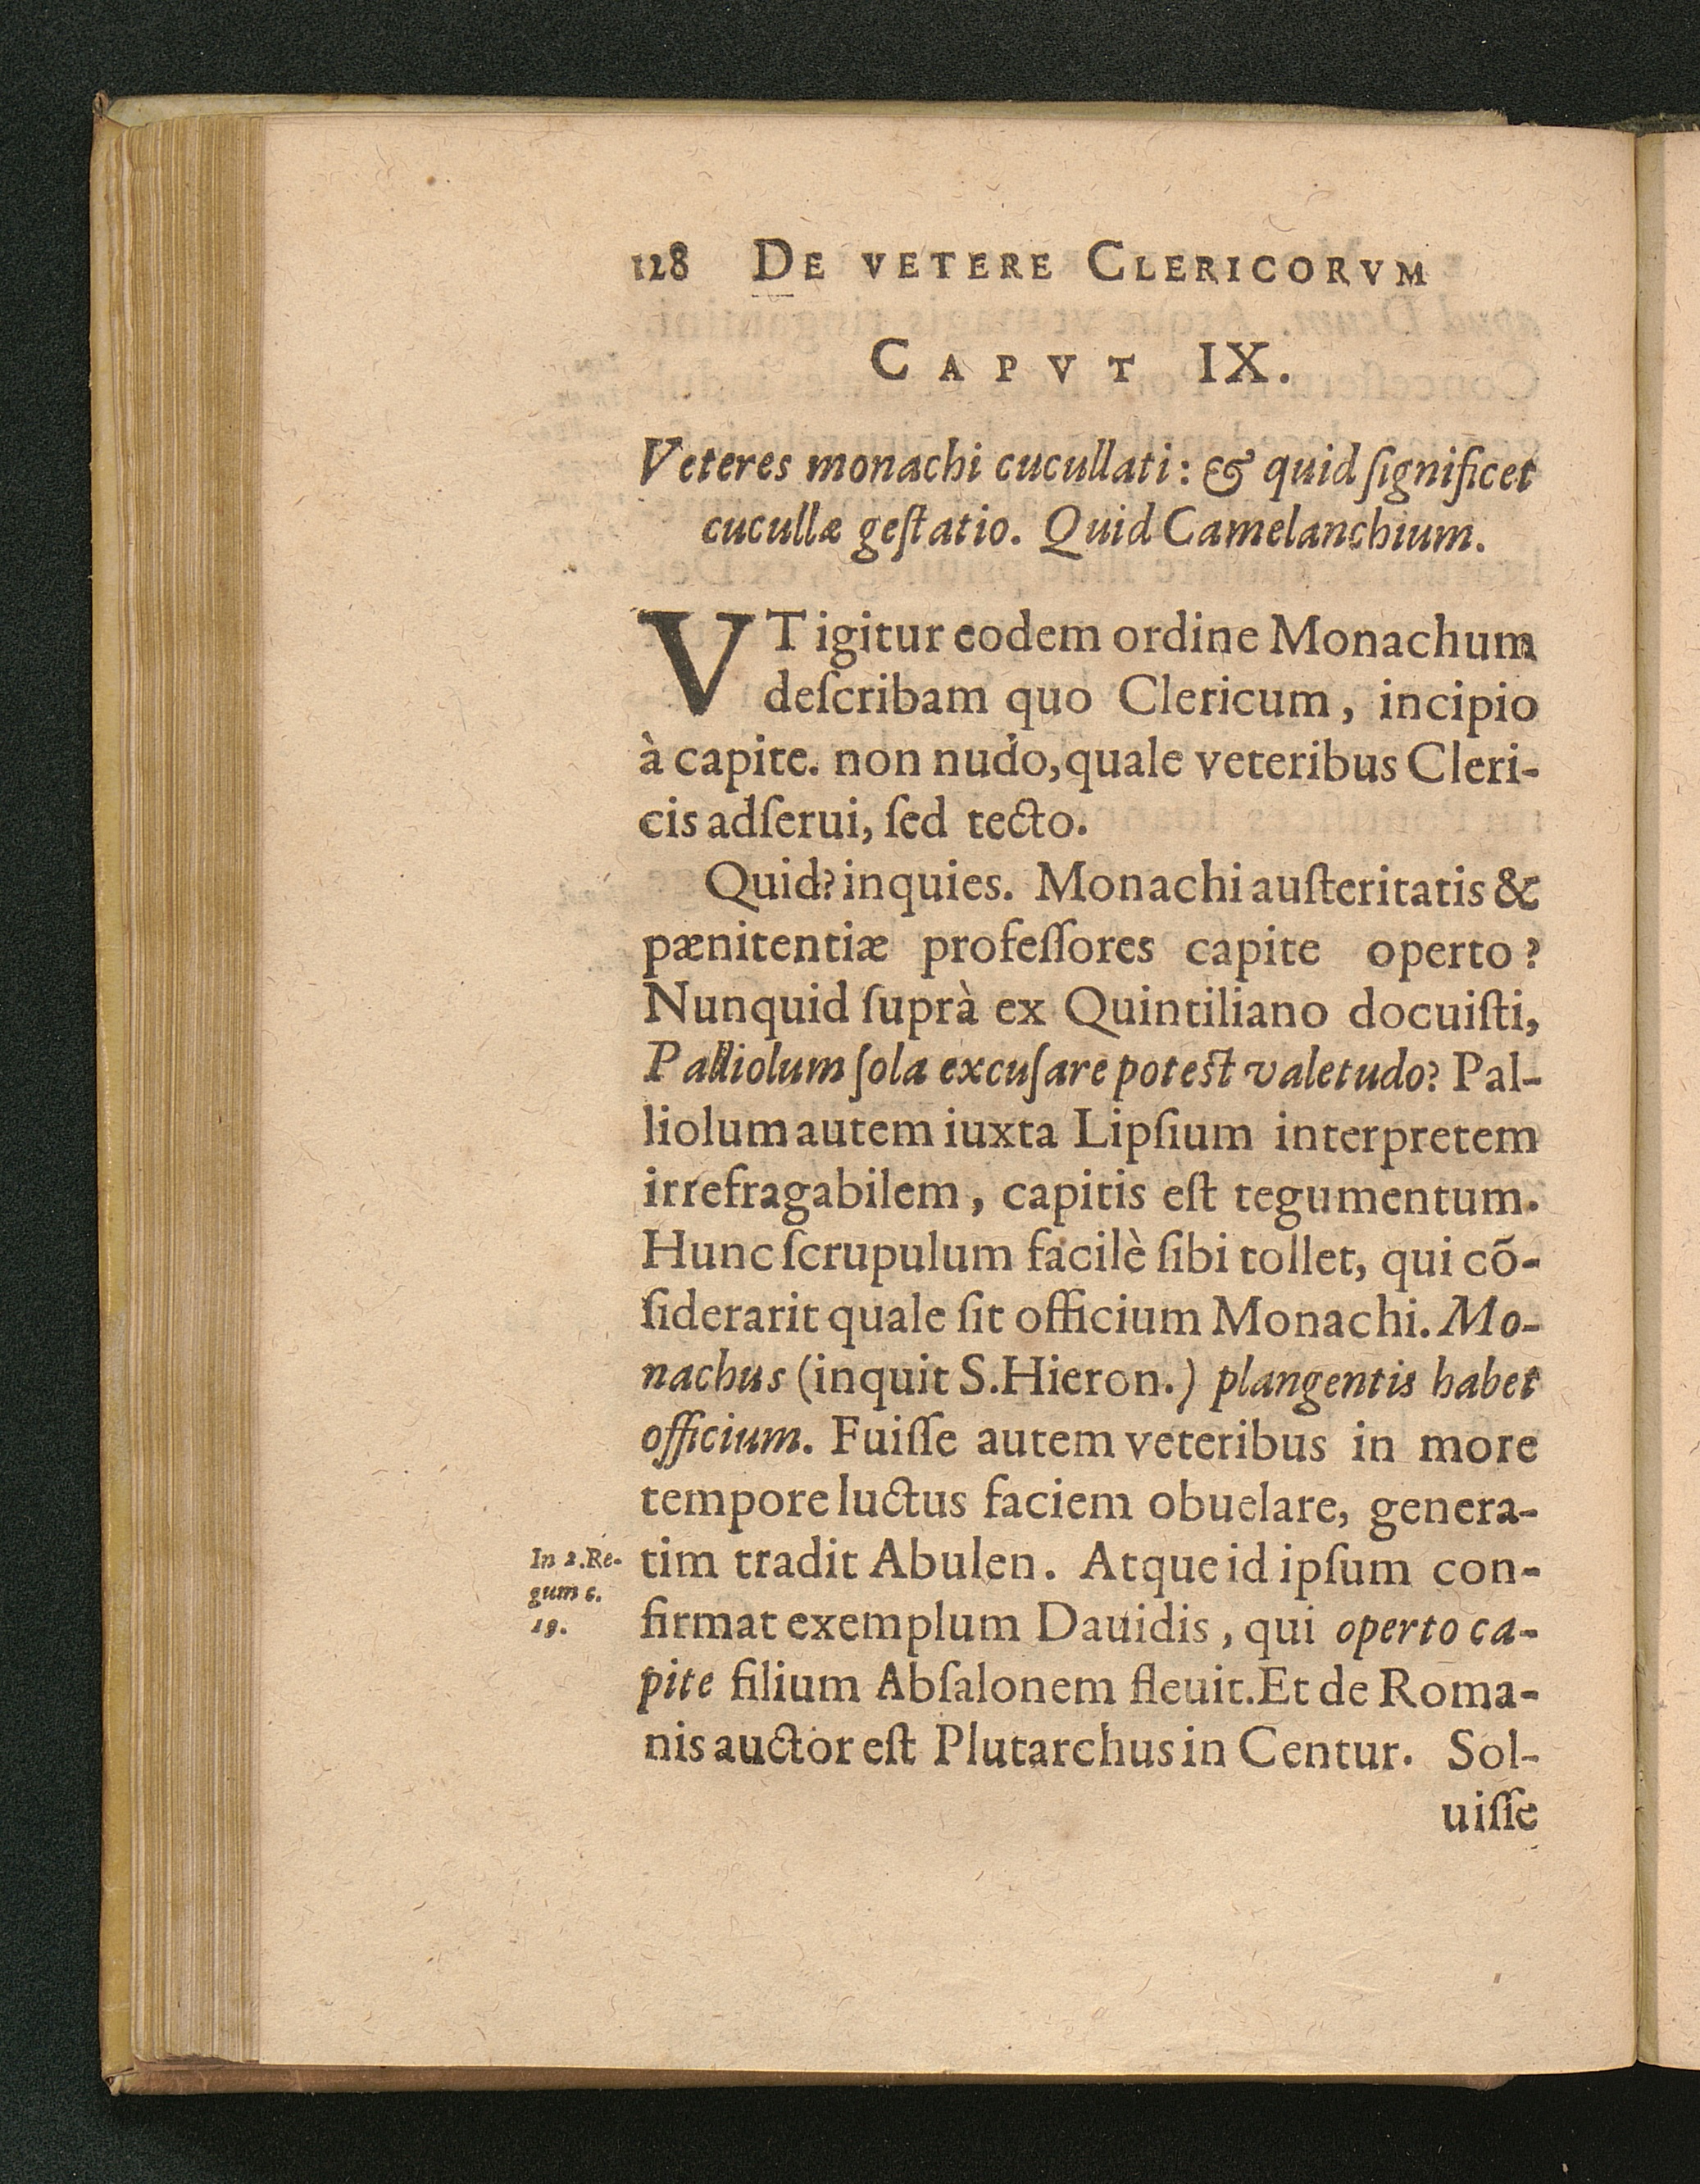 128 DE VETERE CLERICORVM
CAPVT IX.
Veteres monachi cucullati: & quid ſignificet
cucullæ geſtatio. Quid Camelanchium.
VT igitur eodem ordine Monachum
deſcribam quo Clericum, incipio
à capite. non nudo, quale veteribus Cleri-
cis adſerui, ſed tecto.
Quid? inquies. Monachi auſteritatis &
pænitentiæ profeſſores capite operto?
Nunquid ſuprà ex Quintiliano docuiſti,
Palliolum ſola excuſare poteſt valetudo? Pal-
liolum autem iuxta Lipſium interpretem
irrefragabilem, capitis eſt tegumentum.
Hunc ſcrupulum facilè ſibi tollet, qui cõ-
ſiderarit quale ſit officium Monachi. Mo-
nachus (inquit S. Hieron.) plangentis habet
officium. Fuiſſe autem veteribus in more
tempore luctus faciem obuelare, genera-
In 2. Re-
gum c.
19.
tim tradit Abulen. Atque id ipſum con-
firmat exemplum Dauidis, qui operto ca-
pite filium Abſalonem fleuit. Et de Roma-
nis auctor eſt Plutarchus in Centur. Sol-
uiſſe